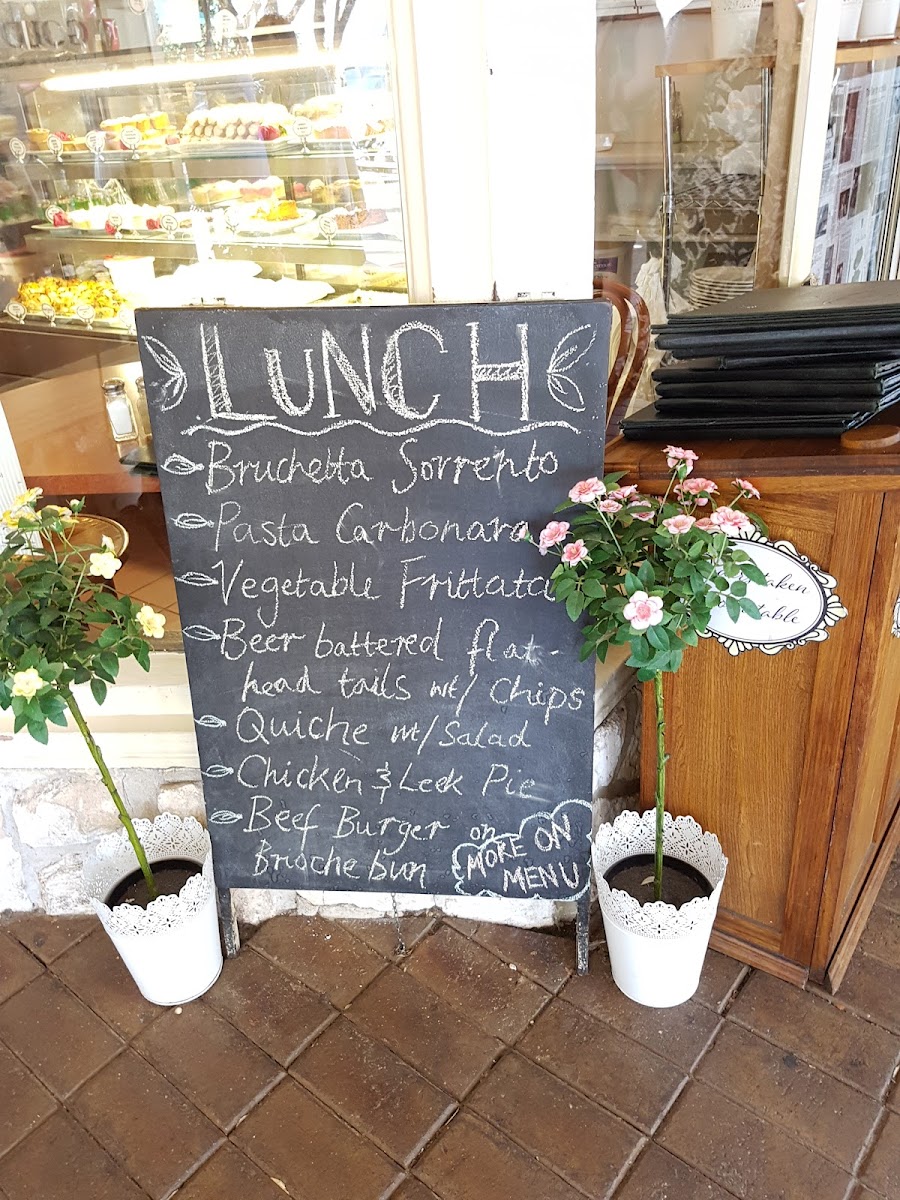 LUNCH
Bruchetta Sorrento
Pasta Carbonara
Vegetable Frittata
Beer battered flat-
head tails wt/ Chips
Quiche wt/ Salad
Chicken & Leek Pie
Beef Burger on
Brioche bun
MORE ON
MENU